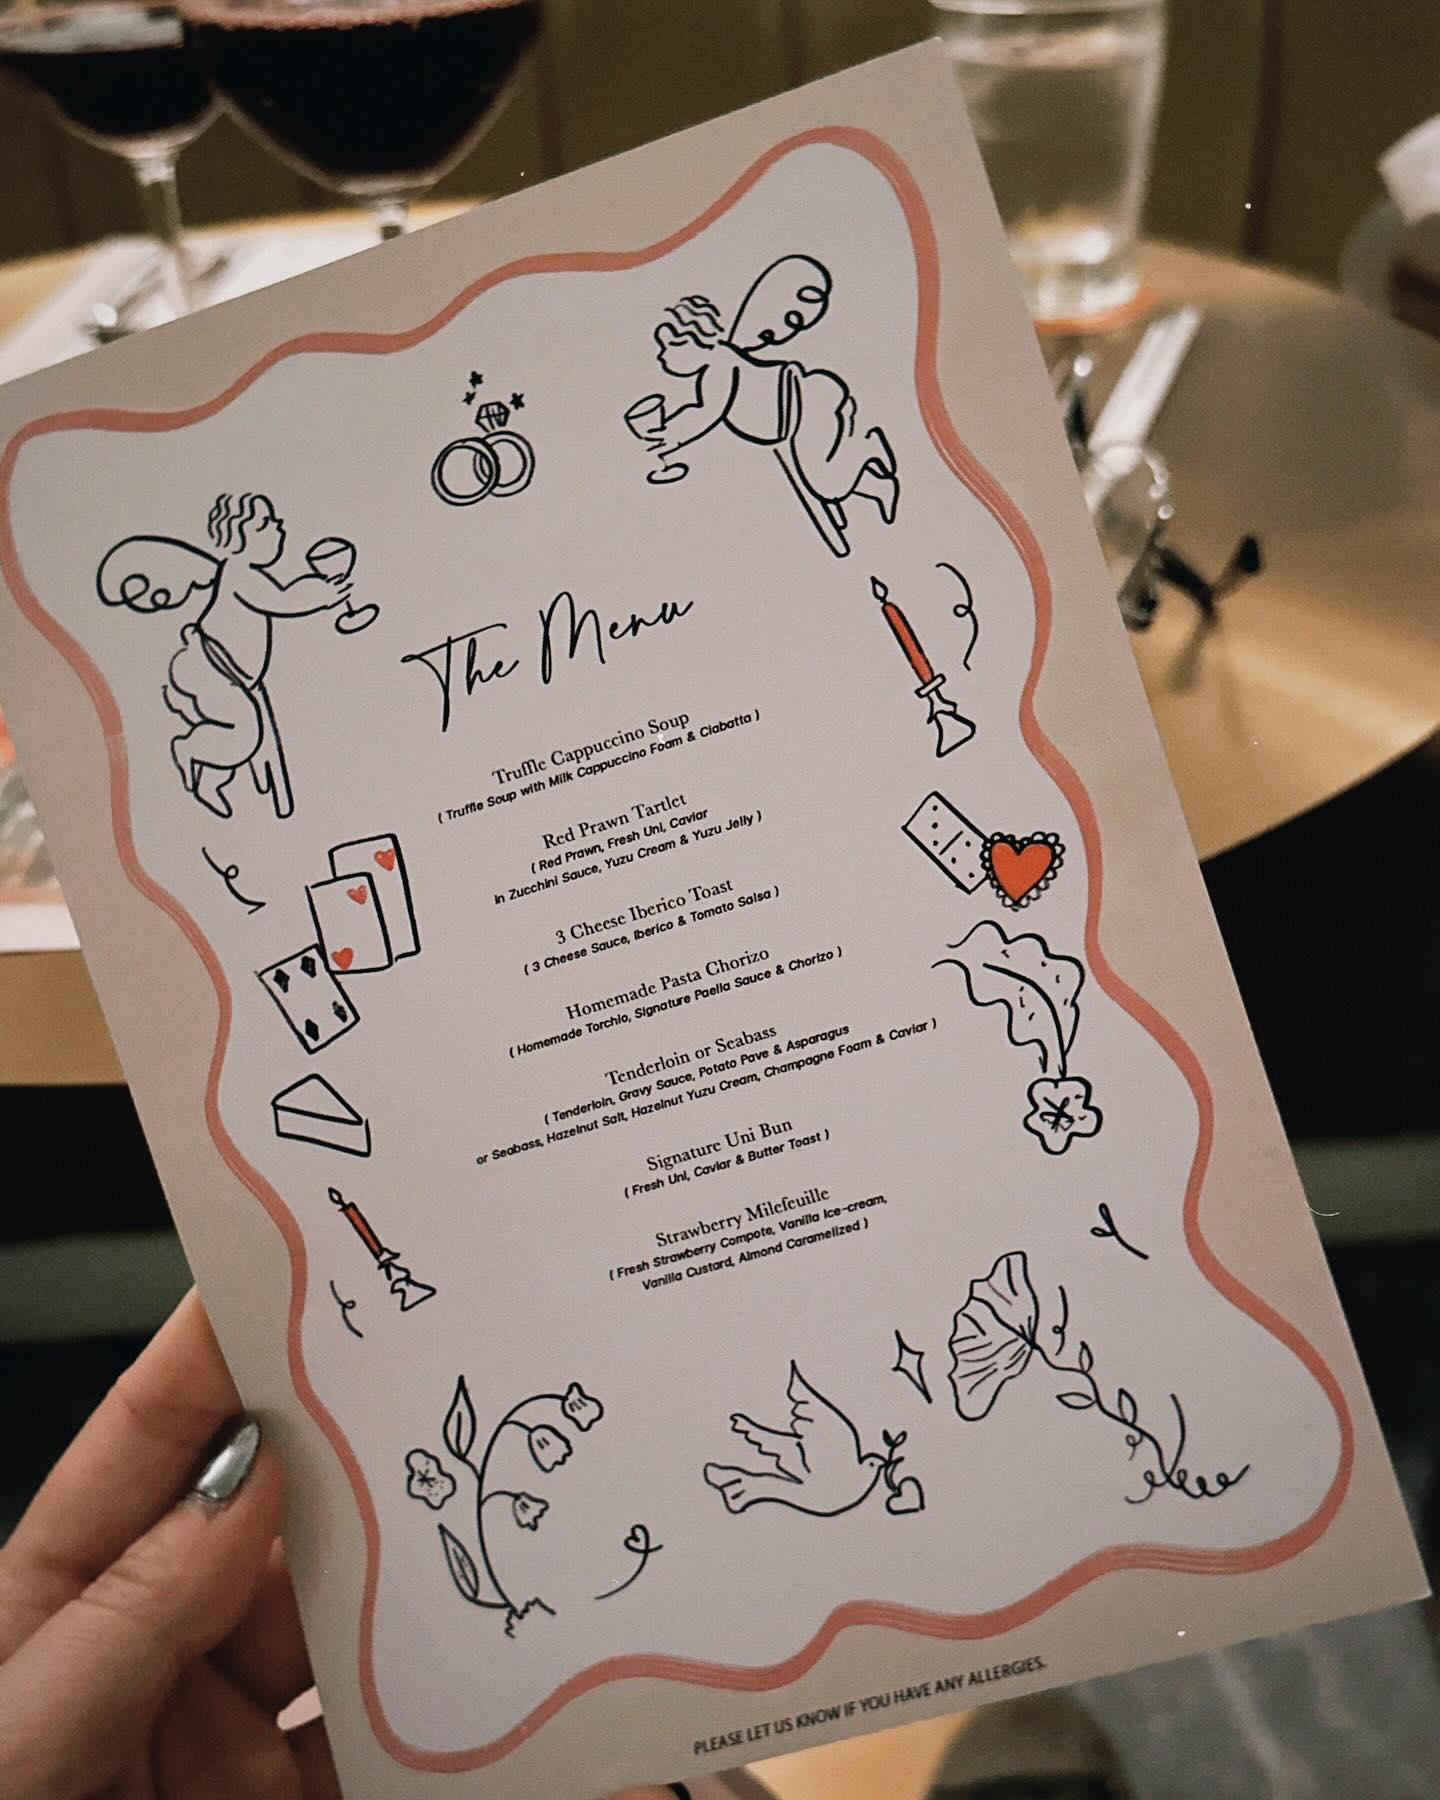 The Menu
Truffle Cappuccino Soup
( Truffle Soup with Milk Cappuccino Foam & Ciabatta )
Red Prawn Tartlet
( Red Prawn, Fresh Uni, Caviar
In Zucchini Sauce, Yuzu Cream & Yuzu Jelly )
3 Cheese Iberico Toast
( 3 Cheese Sauce, Iberico & Tomato Salsa )
Homemade Pasta Chorizo
( Homemade Torchio, Signature Paella Sauce & Chorizo )
Tenderloin or Seabass
( Tenderloin, Gravy Sauce, Potato Pave & Asparagus
or Seabass, Hazelnut Salt, Hazelnut Yuzu Cream, Champagne Foam & Caviar )
Signature Uni Bun
( Fresh Uni, Caviar & Butter Toast )
Strawberry Milefeuille
( Fresh Strawberry Compote, Vanilla Ice-cream,
Vanilla Custard, Almond Caramelized )
PLEASE LET US KNOW IF YOU HAVE ANY ALLERGIES.